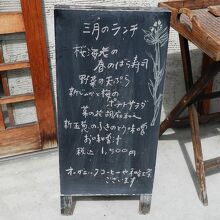 三月のランチ
桜海老の
春のばら寿司
野菜の天ぷら
新じゃがと梅の
ポテトサラダ
菜の花
新玉葱の
お味噌汁
税込 1,500円
オーガニックコーヒーや和紅茶
ございます